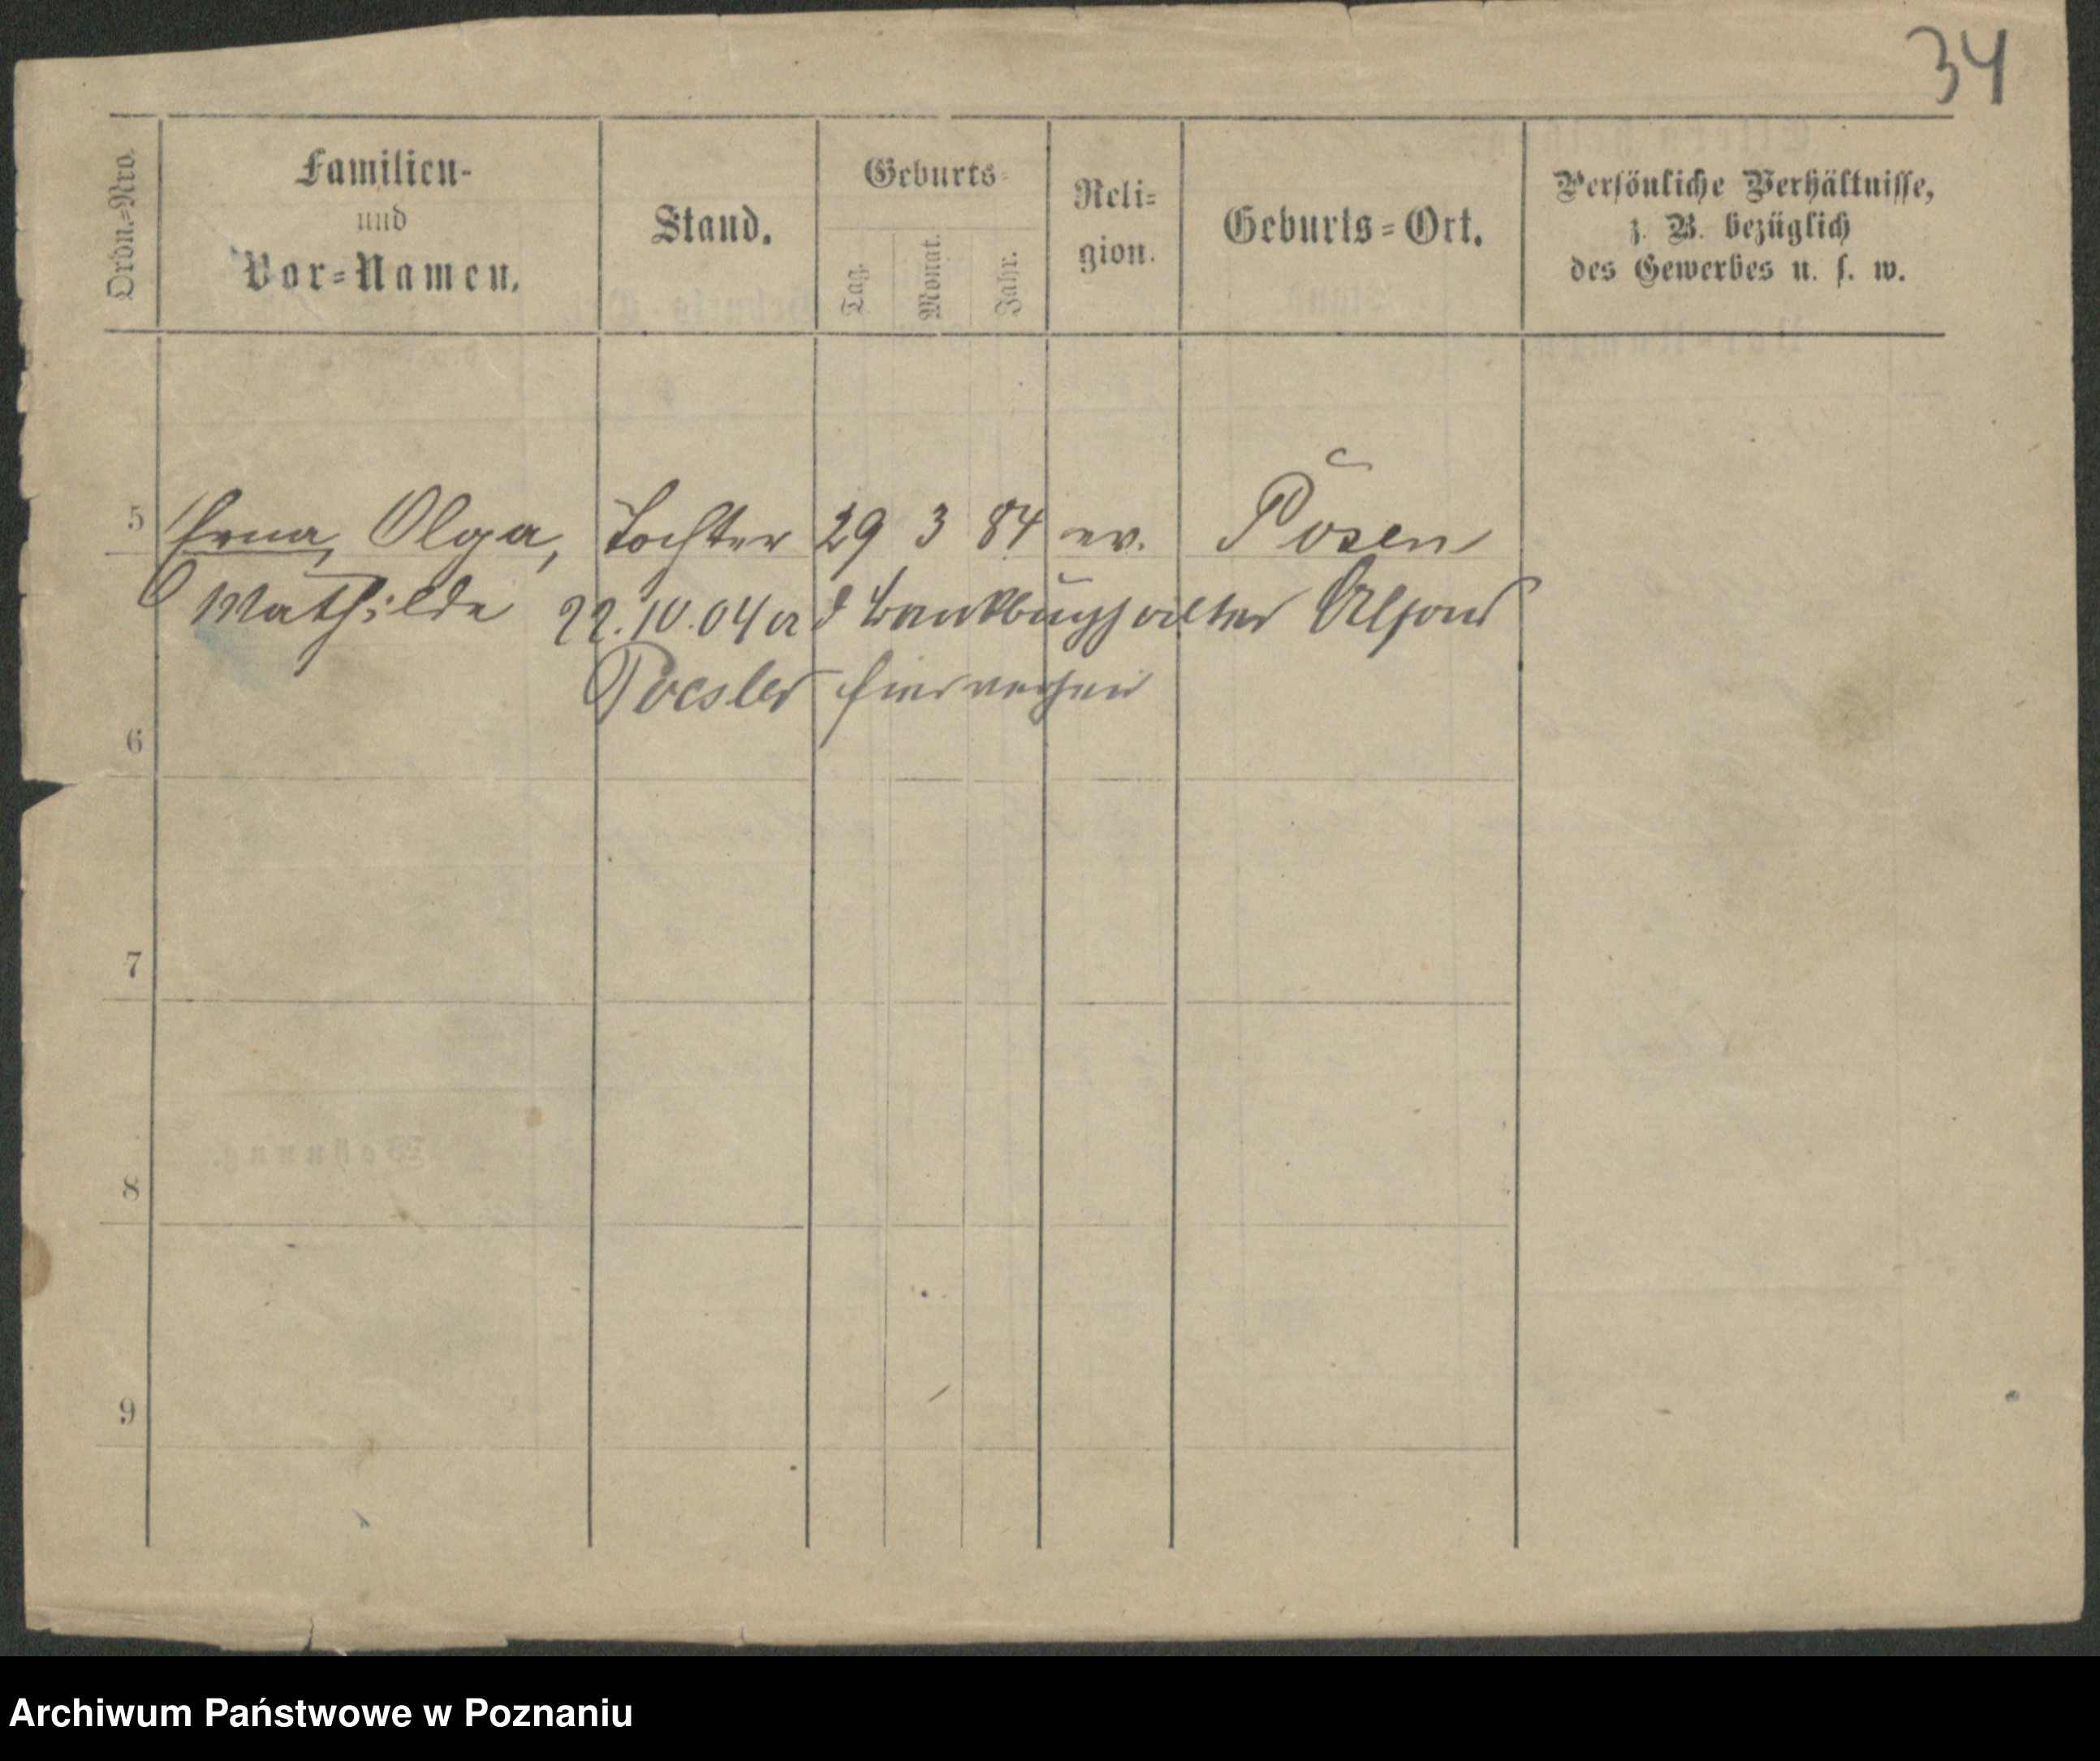 34
Ordn.=Nro.
Familien-
und
Vor=Namen.
Stand.
Geburts-
Tag.
Monat.
Jahr.
Reli=
gion.
Geburts=Ort.
Persönliche Verhältnisse,
z. B. bezüglich
des Gewerbes u. s. w.
5 Erna, Olga, Tochter 29 3 84 ev. Posen
Mathilde 22.10.04 a d Bankbuchhalter
6
7
8
9
Archiwum Państwowe w Poznaniu